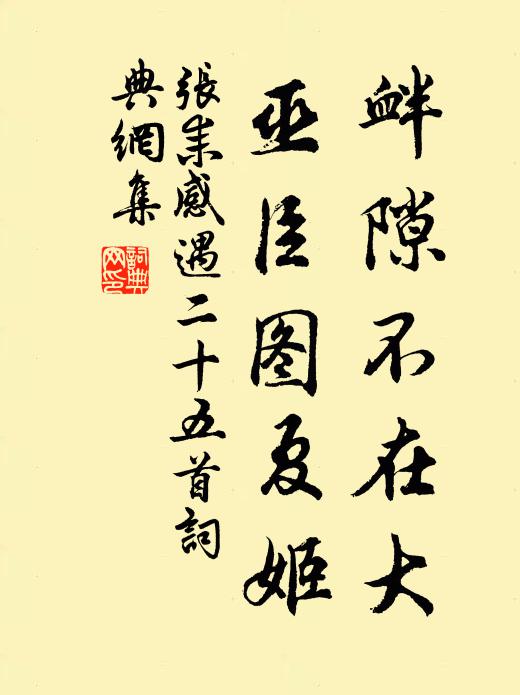 衅隙不在大
巫臣图夏姬
張耒感遇二十五首詞
典網集
詞典
网印